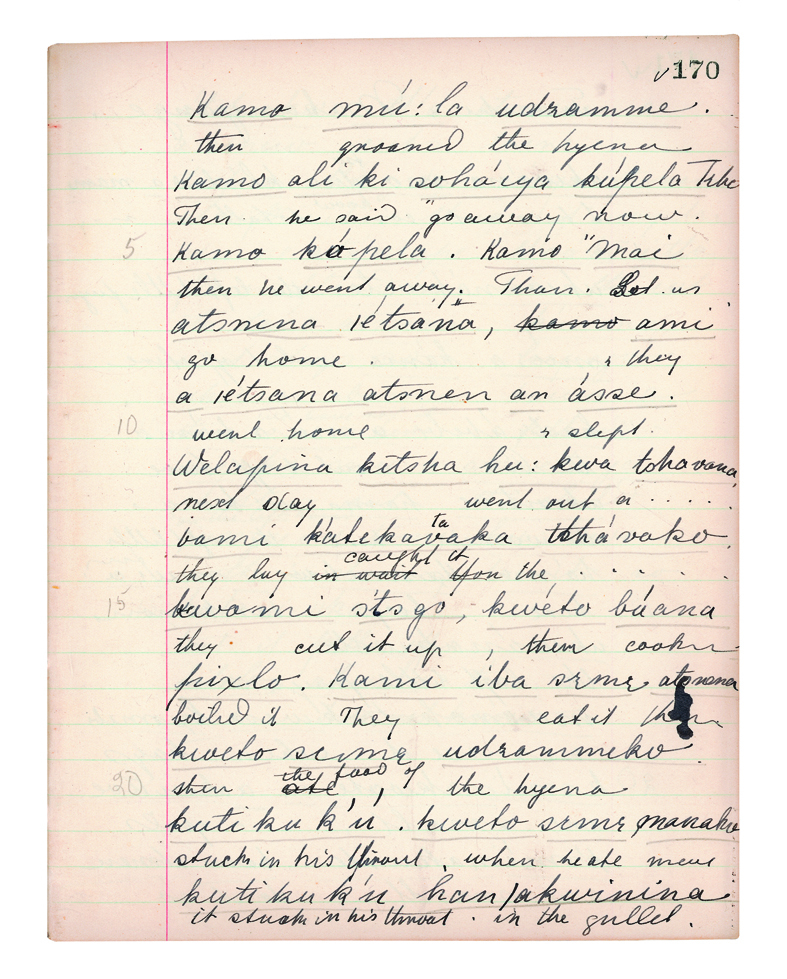 ✓170
Kamo mú:la udzamme.
then groaned the hyena
Kamo ali ki sohácya kúpela
Then he said "go away now.
5 Kamo kópela. Kamo "Mai
then he went away. Then. Let us
atsnina iétsána", kamo ami
go home. " they
a iétsana atsnen an ásse.
10 went home " slept.
Welapina kitsha hu: kwa tshavana,
next day went out a .....
bami kátekavataka tshávako.
they lay in wait caught it on the ......
15 kwami s'tsgo, kwéto báana
they cut it up, then cook
pixlo. Kami iba seme atsnena
boiled it They eat it then
kweto seme udzammeko.
20 then ate the food of, the hyena
kuti ku k'ú. kweto seme manako
stuck in his throat, when he ate meat
kuti ku k'u han/akwinina
it stuck in his throat. in the gullet.